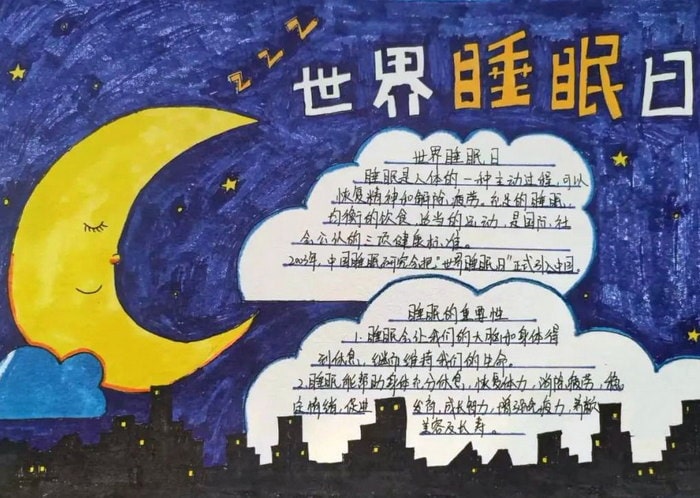 z z z
世界睡眠日
世界睡眠日
睡眠是人体的一种主动过程，可以
恢复精神和解除疲劳。充足的睡眠、
均衡的饮食、适当的运动，是国际社
会公认的三项健康标准。
2003年，中国睡眠研究会把“世界睡眠日”正式引入中国。
睡眠的重要性
1. 睡眠会让我们的大脑和身体得
到休息，继而维持我们的生命。
2. 睡眠能帮助身体充分休息，恢复体力，消除疲劳，稳
定情绪，促进 发育，成长智力，增强免疫力，
美容及长寿。